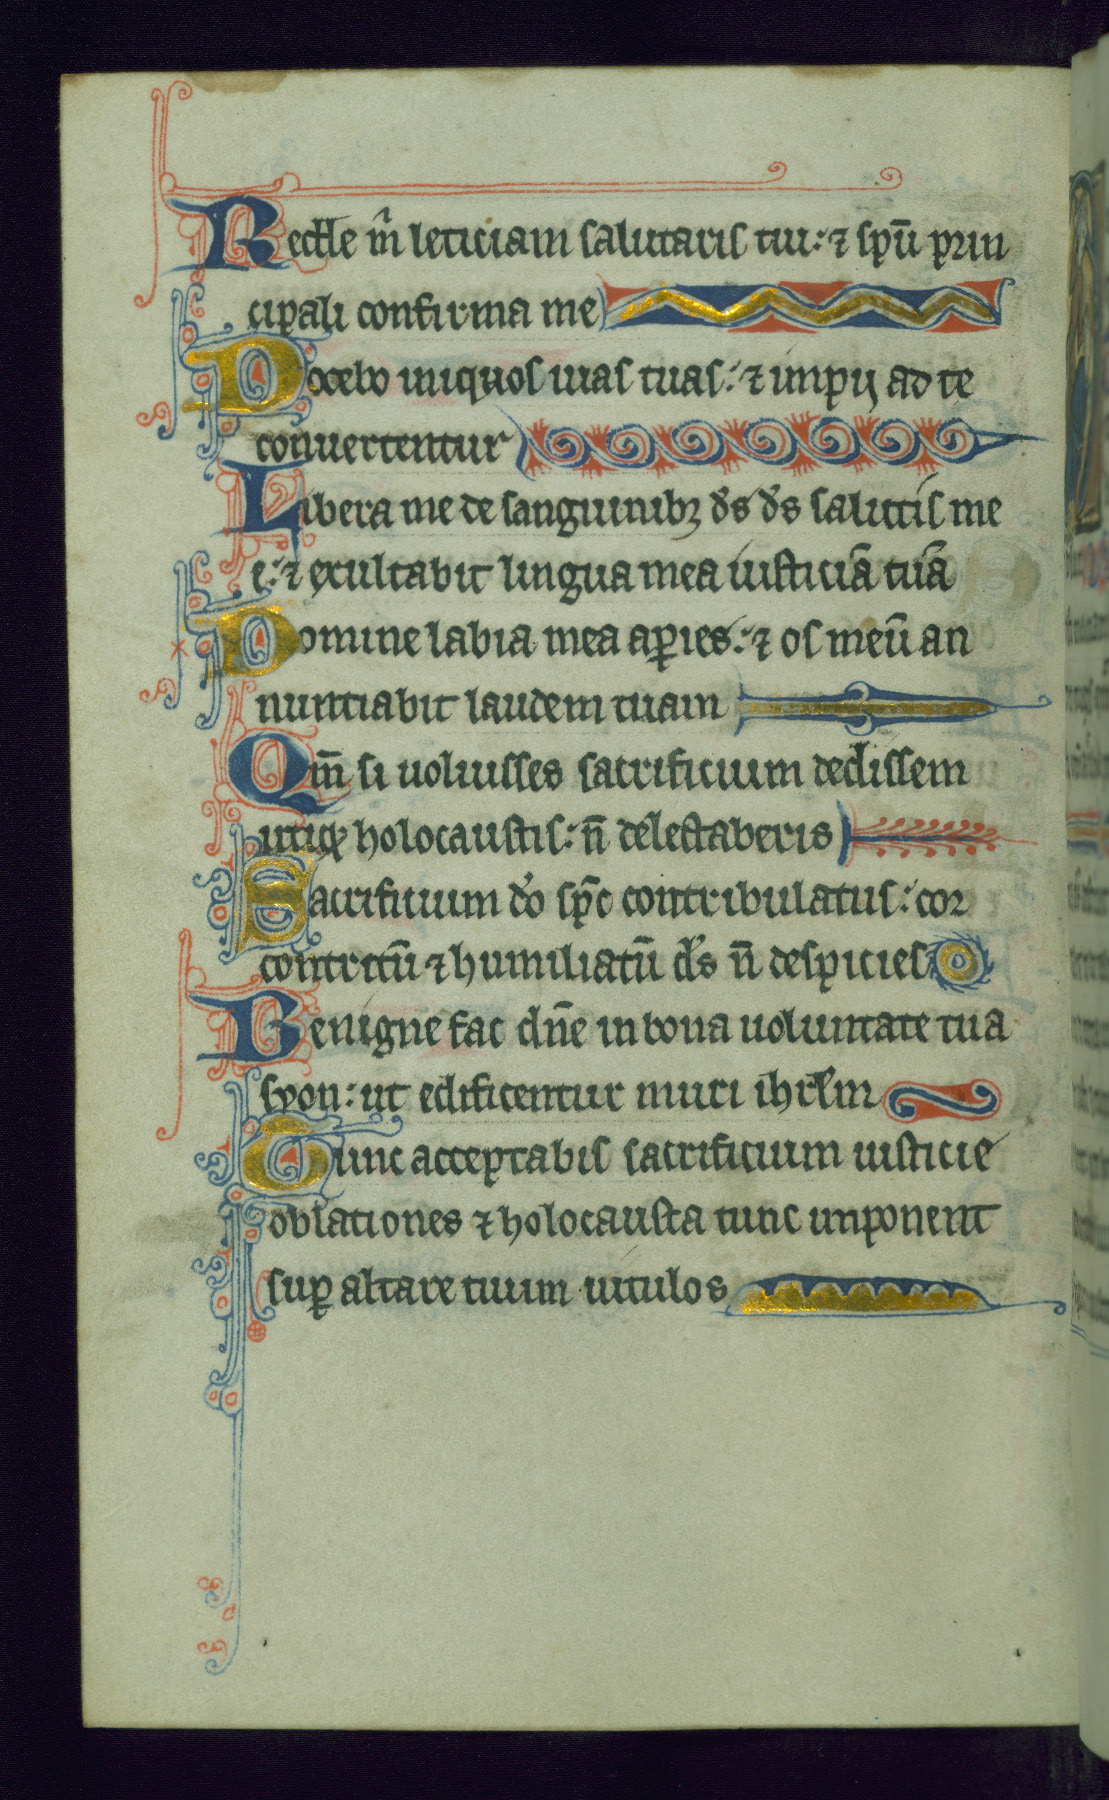 Redde m̃ leticiam salutaris tui: ⁊ spũ prin
cipali confirma me
Docebo iniquos uias tuas: ⁊ impij ad te
conuertentur
Libera me de sanguinibꝫ ds̃ ds̃ salutis me
e: ⁊ exultabit lingua mea iusticiã tuã
Domine labia mea aꝑies: ⁊ os meũ an
nuntiabit laudem tuam
Qm̃ si uoluisses sacrificium dedissem
utiqꝫ holocaustis: ñ delectaberis
Sacrificium do̾ spc̃ contribulatus: cor
contritũ ⁊ humiliatũ ds̃ ñ despicies
Benigne fac dñe in bona uoluntate tua
syon: ut edificentur muri ihrl̃m
Tunc acceptabis sacrificium iusticie
oblationes ⁊ holocausta tunc imponent
suꝑ altare tuum uitulos